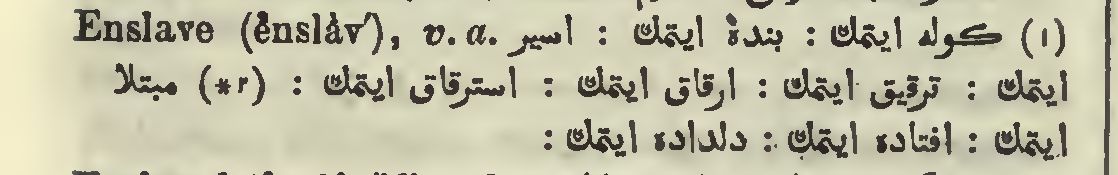 Enslave (ĕnslȧv′), v. a. (۱) كوله ايتمك : بندۀ ايتمك : اسير
ايتمك : ترقيق ايتمك : ارقاق ايتمك : استرقاق ايتمك : (۲*) مبتلا
ايتمك : افتاده ايتمك : دلداده ايتمك :